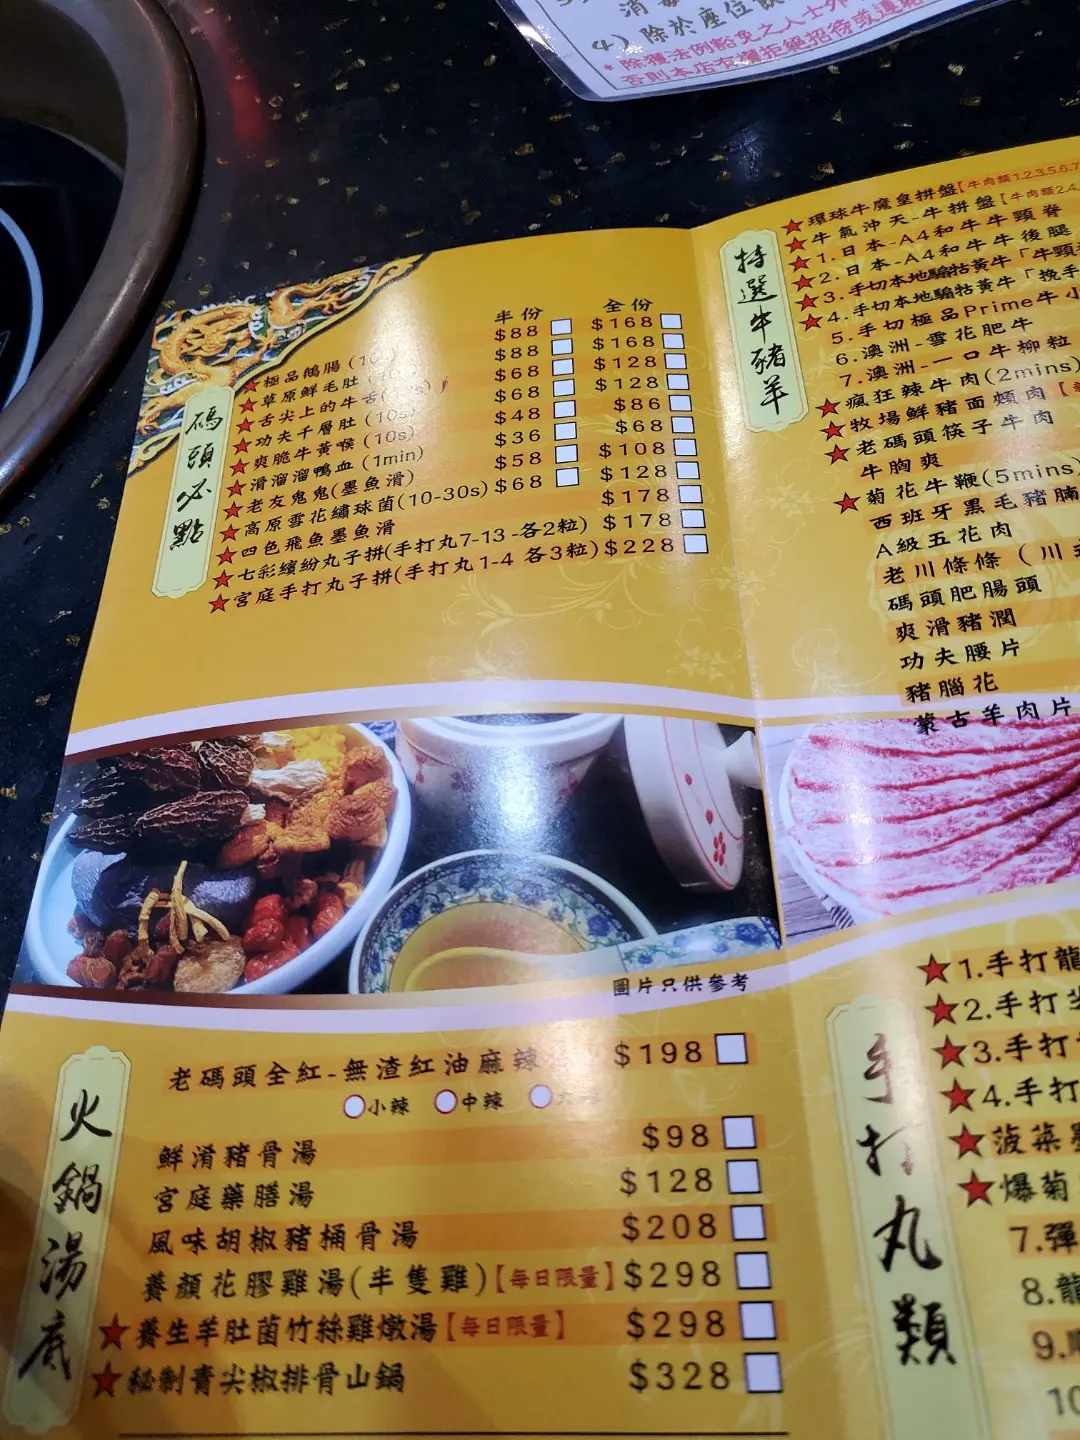 4) 除於座位
*除獲法例豁免之人士外
否則本店有權拒絕招待或
碼頭必點
半份 全份
★極品鵝腸 $88 $168
★草原鮮毛肚 $88 $168
★舌尖上的牛舌 $68 $128
★功夫千層肚(10s) $68 $128
★爽脆牛黃喉(10s) $48 $86
★滑溜溜鴨血(1min) $36 $68
★老友鬼鬼(墨魚滑) $58 $108
★高原雪花繡球菌(10-30s) $68 $128
★四色飛魚墨魚滑 $178
★七彩繽紛丸子拼(手打丸7-13-各2粒) $178
★宮庭手打丸子拼(手打丸1-4 各3粒) $228
特選牛豬羊
★環球牛魔皇拼盤【牛肉類1.2.3.5.6.7
★牛氣沖天-牛拼盤【牛肉類2.4.
★1.日本-A4和牛牛頸脊
★2.日本-A4和牛牛後腿
★3.手切本地騸牯黃牛「牛頸
★4.手切本地騸牯黃牛「挽手
5.手切極品Prime牛小
6.澳洲-雪花肥牛
7.澳洲-一口牛柳粒
★瘋狂辣牛肉(2mins)
★牧場鮮豬面頰肉
★老碼頭筷子牛肉
牛胸爽
★菊花牛鞭(5mins)
西班牙黑毛豬腩
A級五花肉
老川條條(川
碼頭肥腸頭
爽滑豬潤
功夫腰片
豬腦花
蒙古羊肉片
圖片只供參考
火鍋湯底
老碼頭全紅-無渣紅油麻辣 $198
小辣 中辣
鮮淆豬骨湯 $98
宮庭藥膳湯 $128
風味胡椒豬桶骨湯 $208
養顏花膠雞湯(半隻雞)【每日限量】 $298
★養生羊肚菌竹絲雞燉湯【每日限量】 $298
★秘制青尖椒排骨山鍋 $328
手打丸類
★1.手打龍
★2.手打
★3.手打
★4.手打
★菠菜
★爆菊
7.彈
8.龍
9.
10